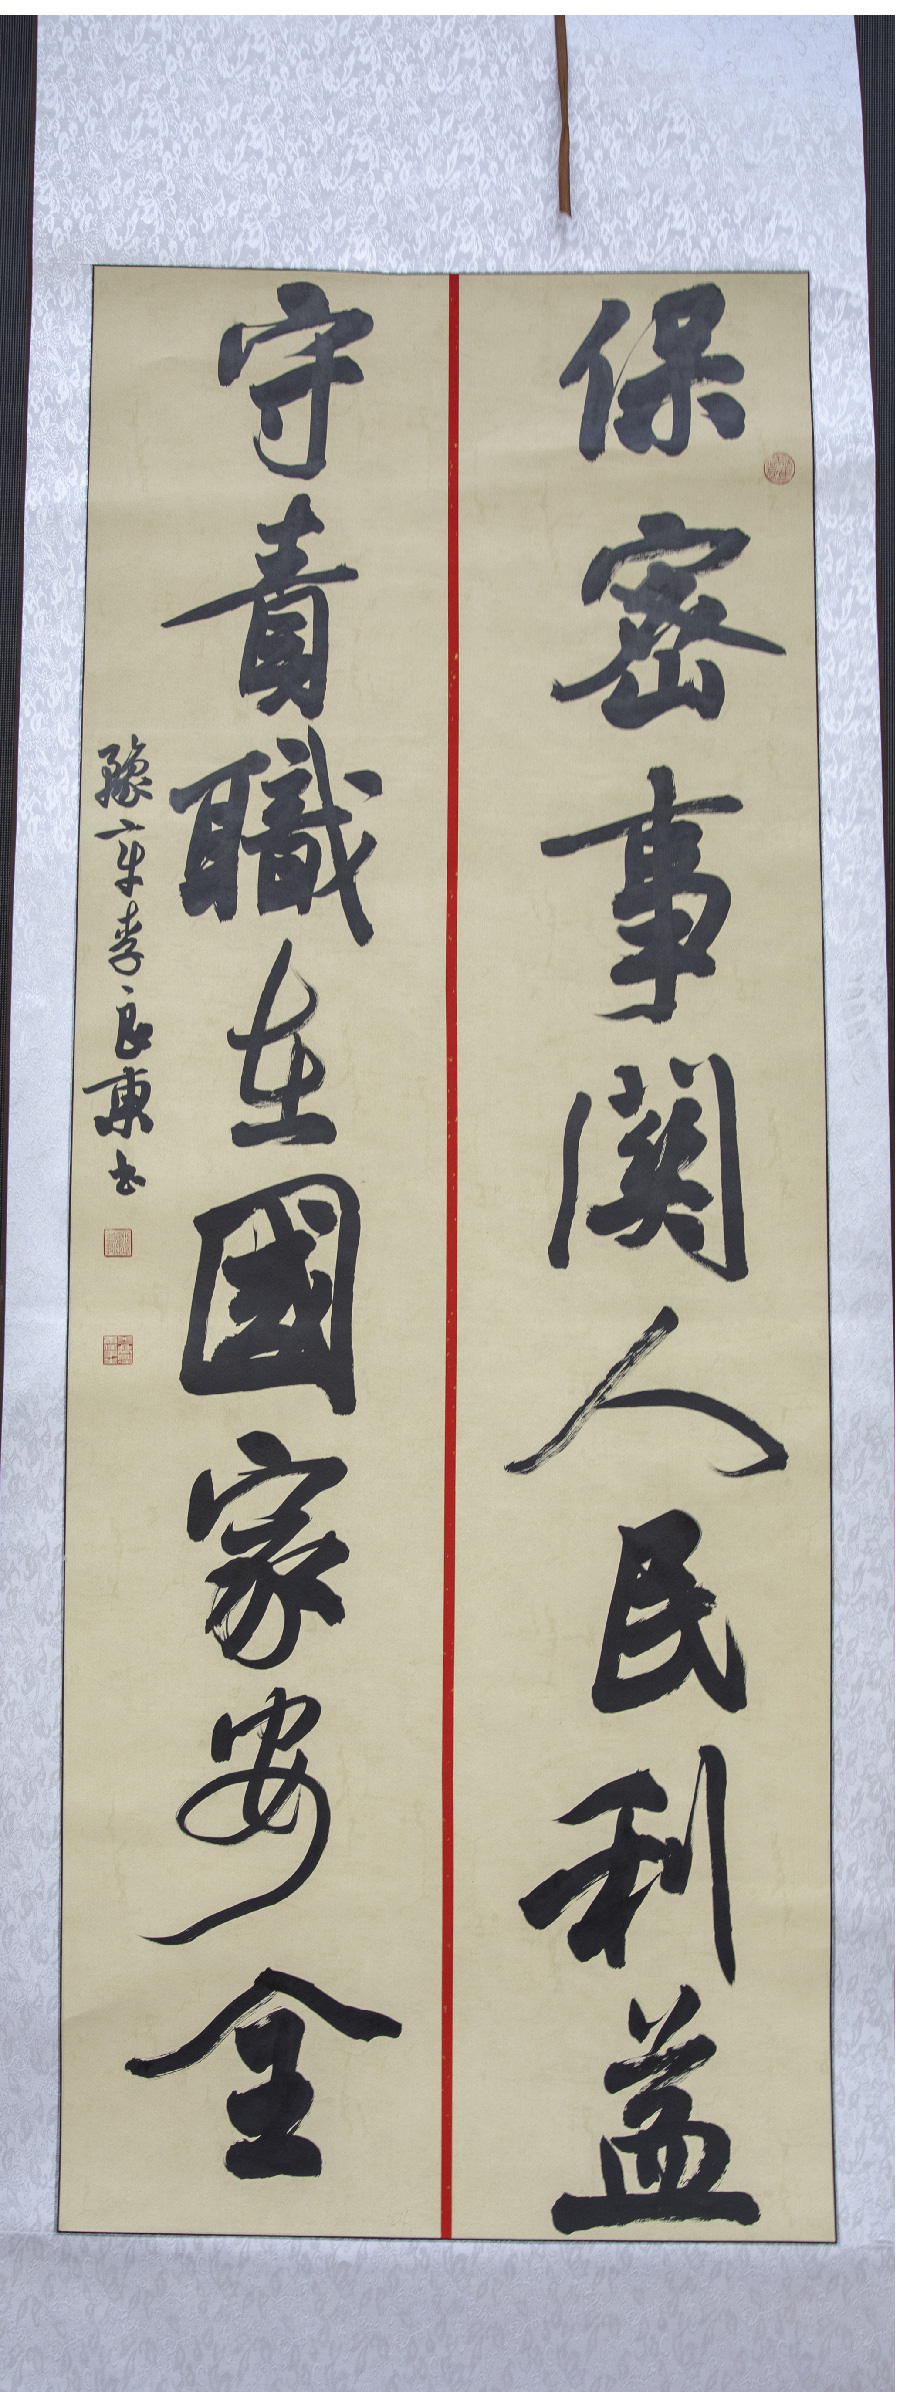 保密事關人民利益
守責職在國家安全
豫章李良東书